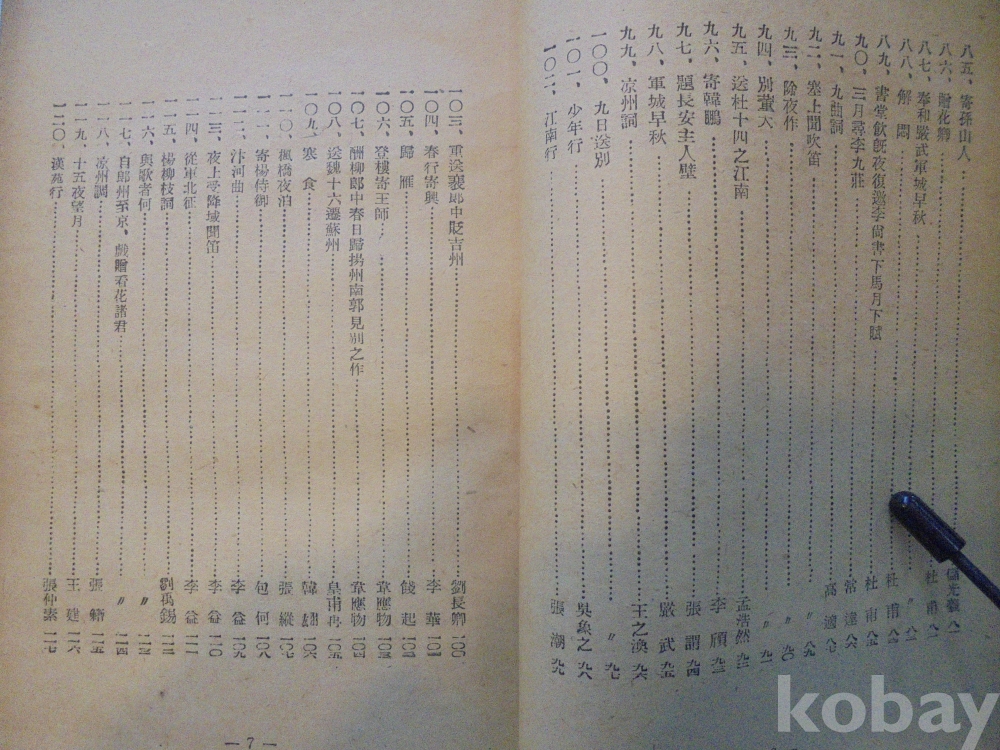 八五、寄孫山人……儲光羲 八一
八六、贈花卿……杜甫 八一
八七、奉和嚴武軍城早秋……〃
八八、解悶……杜甫
八九、書堂飲旣夜復邀李尙書下馬月下賦……杜甫 八五
九〇、三月尋李九莊……常達 八六
九一、九曲詞……高適
九二、塞上聞吹笛……〃 八九
九三、除夜作……〃 九〇
九四、別董大……〃 九一
九五、送杜十四之江南……孟浩然 九三
九六、寄韓鵬……李頎
九七、題長安主人壁……張謂 九四
九八、軍城早秋……嚴武 九五
九九、凉州詞……王之渙 九六
一〇〇、九日送別……〃 九七
一〇一、少年行……吳象之 九八
一〇二、江南行……張潮 九九
一〇三、重送裵郎中貶吉州……劉長卿 一〇〇
一〇四、春行寄興……李華
一〇五、歸雁……錢起
一〇六、登樓寄王師……韋應物
一〇七、酬柳郎中春日歸揚州南郭見別之作……韋應物 一〇四
一〇八、送魏十六還蘇州……皇甫冉 一〇五
一〇九、寒食……韓翃 一〇六
一一〇、楓橋夜泊……張繼 一〇七
一一一、寄楊侍御……包何 一〇八
一一二、汴河曲……李益 一〇九
一一三、夜上受降城聞笛……李益 一一〇
一一四、從軍北征……李益 一一一
一一五、楊柳枝詞……劉禹錫
一一六、與歌者何……〃
一一七、自郎州至京、戱贈看花諸君……〃 一一四
一一八、凉州調……張籍 一一五
一一九、十五夜望月……王建 一一六
一二〇、漢苑行……張仲素 一一七
— 7 —
kobay